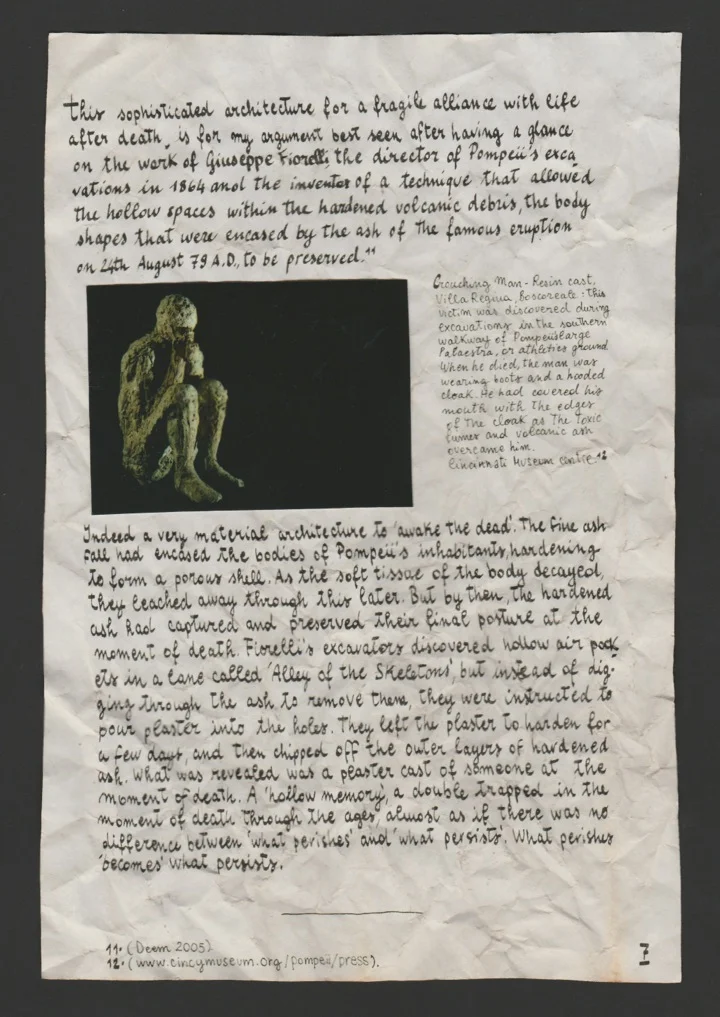 This sophisticated architecture for a fragile alliance with life
after death, is for my argument best seen after having a glance
on the work of Giuseppe Fiorelli, the director of Pompeii's exca
vations in 1864 and the inventor of a technique that allowed
the hollow spaces within the hardened volcanic debris, the body
shapes that were encased by the ash of the famous eruption
on 24th August 79 A.D., to be preserved.11
Crouching Man - Resin cast.
Villa Regina, Boscoreale: This
victim was discovered during
excavations in the southern
walkway of Pompeiislarge
Palaestra, or athletics ground
When he died, the man was
wearing boots and a hooded
cloak. He had covered his
mouth with the edges
of the cloak as the toxic
fumes and volcanic ash
overcame him.
Cincinnati Museum centre.12
Indeed a very material architecture to 'awake the dead'. The fine ash
fall had encased the bodies of Pompeii's inhabitants, hardening
to form a porous shell. As the soft tissae of the body decayed,
they leached away through this later. But by then, the hardened
ash had captured and preserved their final posture at the
moment of death. Fiorelli's excavators discovered hollow air pock
ets in a lane called 'Alley of the Skeletons', but instead of dig-
ging through the ash to remove them, they were instructed to
pour plaster into the holes. They left the plaster to harden for
a few days, and then chipped off the outer layers of hardened
ash. What was revealed was a plaster cast of someone at the
moment of death. A 'hollow memory', a double trapped in the
moment of death through the ages, almost as if there was no
difference between 'what perishes' and 'what persists'. What perishes
'becomes' what persists.
11. (Deem 2005)
12. (www.cincymuseum.org/pompeii/press).
7